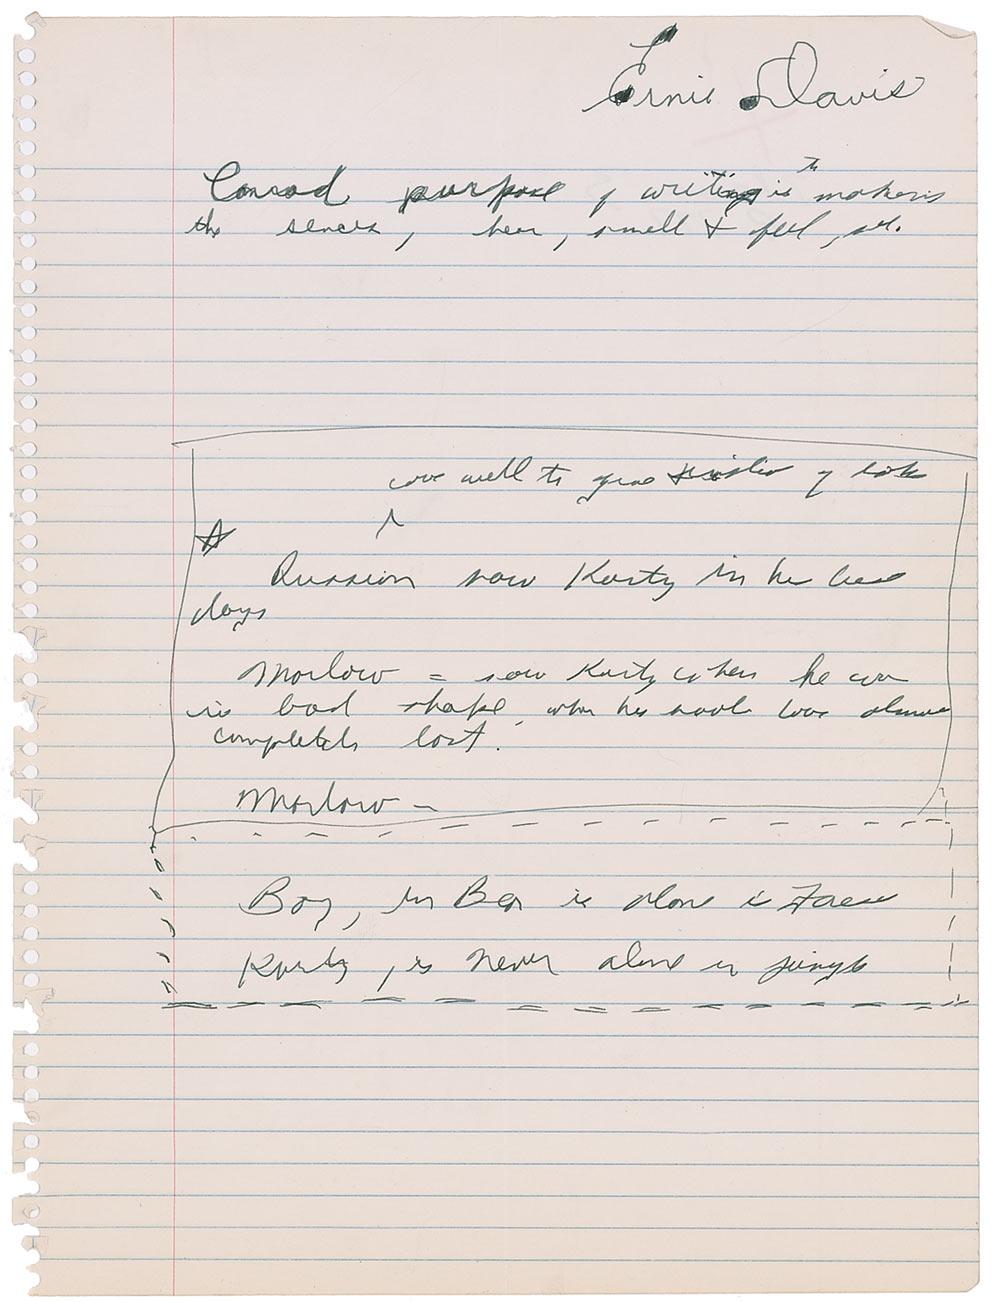 Ernie Davis
Conrad purpose of writing is to
the senses, hear, smell & feel, see.
well to give of
Russian saw Kurtz in his
days
Marlow = saw Kurtz when he was
in bad shape, when his soul was almost
completely lost.
Marlow -
Boy, in Bear is alone in
Kurtz, is never alone in jungle